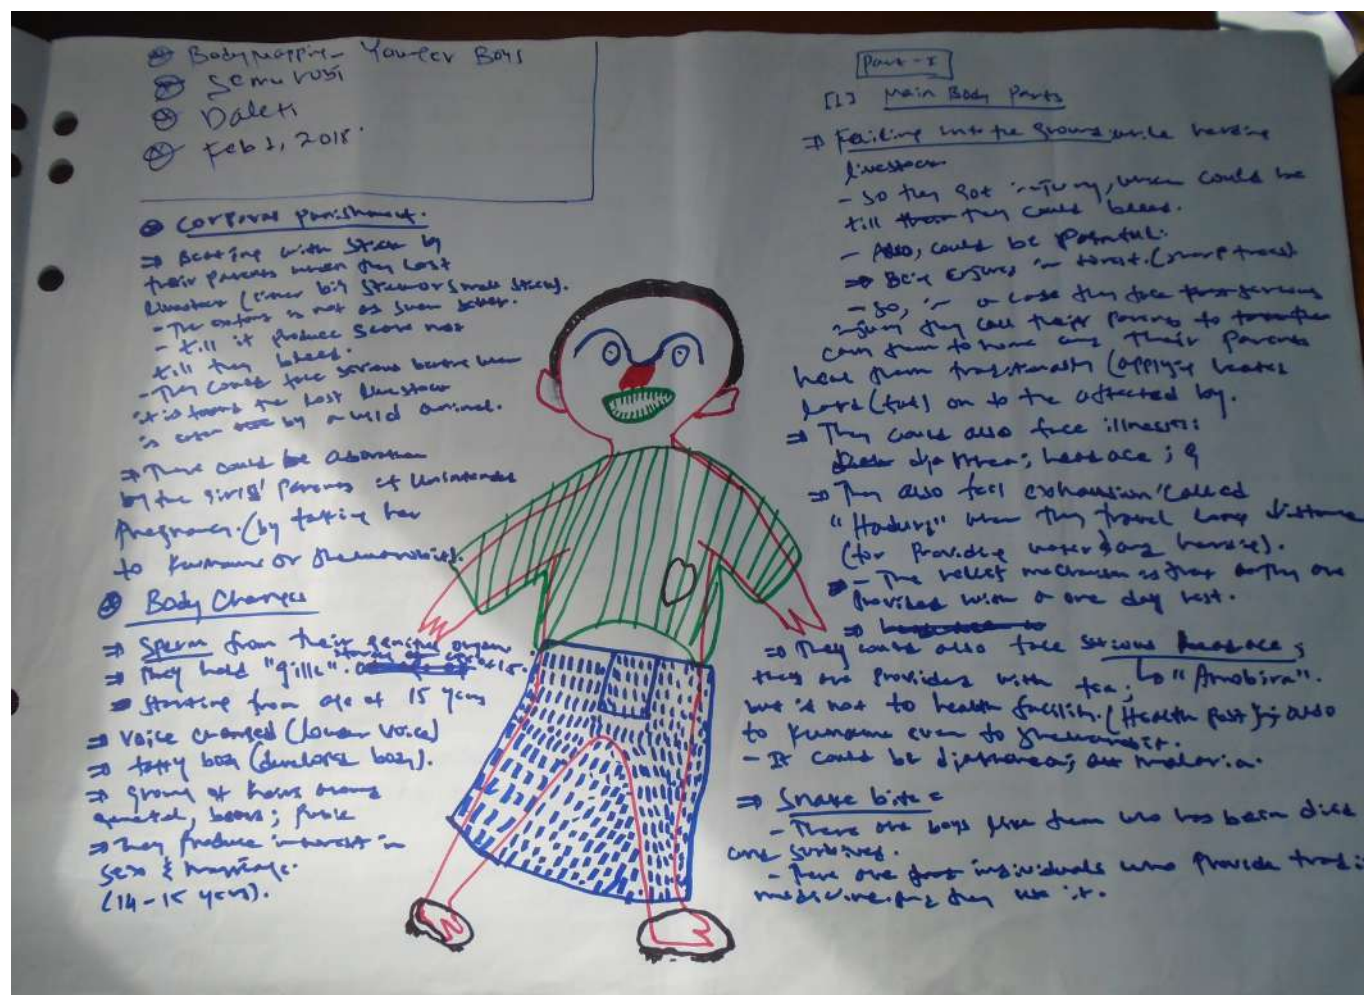 Bodymapping - Younger Boys
Semurobi
Daleti
Feb 1, 2018.
Corporal punishment.
⇒ Beating with stick by
their parents when they lost
livestock (either big stick or small stick).
- The is not as such
- till it produce
till they bleed.
- They could face serious beating when
it is found the lost livestock
is eaten by a wild animal.
⇒ There could be abortion
by the girls' parents if unintended
pregnancy. (by taking her
to
Body Changes
⇒ Sperm from their genital organ
⇒ They hold "gille". <15.
⇒ Starting from age of 15 years
⇒ Voice changed (lower voice)
⇒ fatty body (develops body).
⇒ growing of hairs around
genital, beard; pubic
⇒ They produce interest in
sex & marriage.
(14-15 years).
Part-I
[1] Main Body Parts
⇒ Falling into the ground while herding
livestock
- So they got injury, which could be
till they could bleed.
- Also, could be painful.
⇒ Being in forest. (sharp trees)
- So, in a case they face serious
injury they call their parents to
carry them to home and their parents
heal them traditionally (applying heated
lard (fat) on to the affected by.
⇒ They could also face illness:
headace; &
⇒ They also feel exhaustion called
when they travel long distance
(for providing water during herding).
- The relief mechanism is that they are
provided with a one day rest.
⇒ They could also face serious headace;
they are provided with tea; "Amobira".
but is not to health facility. (Health post); also
to even to
- It could be malaria.
⇒ Snake bite =
- There are boys like them who has been died
and survived.
- There are individuals who provide trad:
medicine and they use it.